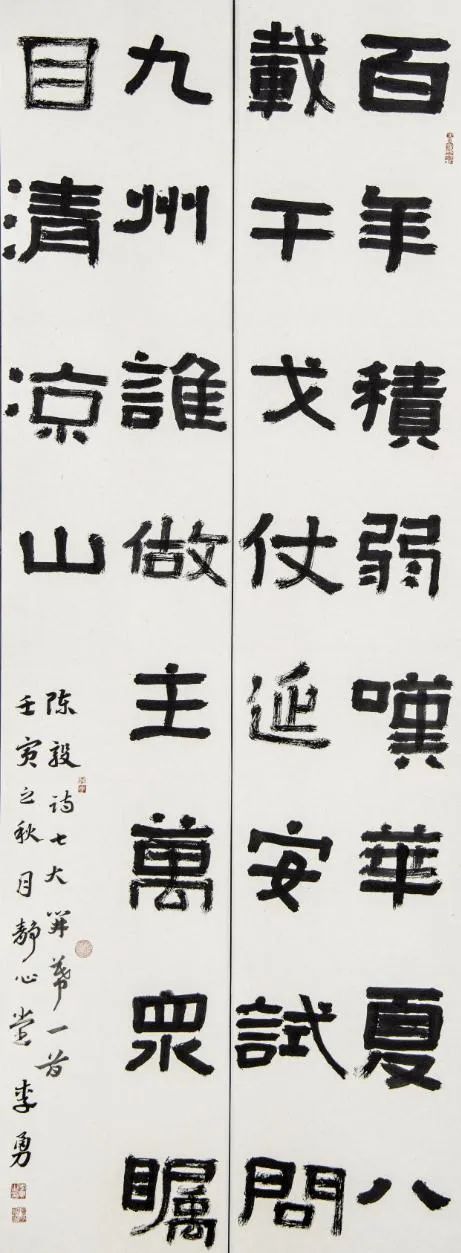 百年積弱嘆華夏八
載干戈仗延安試問
九州誰做主萬眾瞩
目清涼山
陈毅诗七大開幕一首
壬寅之秋月靜心堂李勇